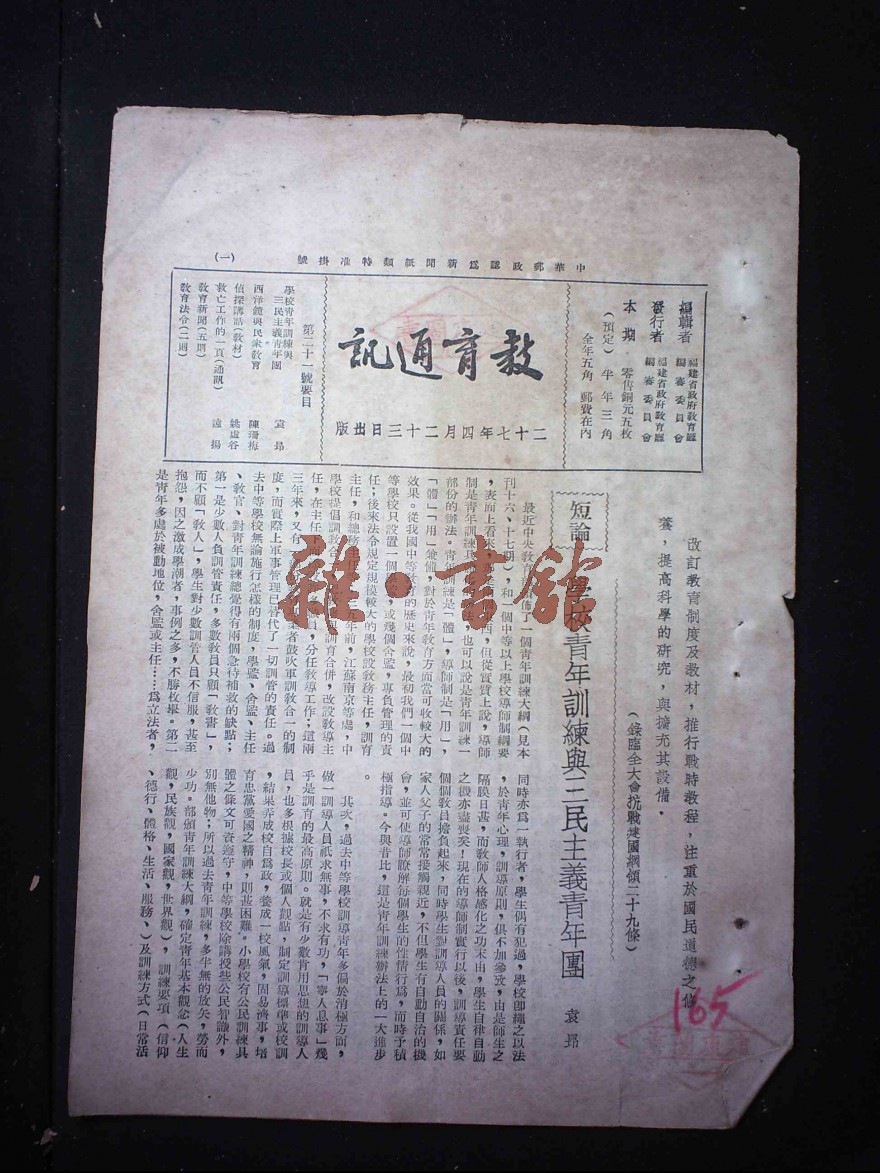 中華郵政認爲新聞紙類特准掛號
(一)
編輯者 福建省政府教育廳編審委員會
發行者 福建省政府教育廳編審委員會
本期 零售銅元五枚
(預定) 半年三角
全年五角 郵費在內
教育通訊
二十七年四月二十三日出版
第二十一號要目
學校青年訓練與
三民主義青年團 袁昂
西洋鏡與民衆教育 陳珊梅
偵探講話(教材) 姚虛谷
救亡工作的一頁(通訊) 遠揚
教育新聞(五則)
教育法令(二則)
改訂教育制度及教材,推行戰時教程,注重於國民道德之修
養,提高科學的研究,與擴充其設備。
(錄臨全大會抗戰建國綱領二十九條)
短論
學校青年訓練與三民主義青年團
袁昂
最近中央教育
佈了一個青年訓練大綱(見本
刊十六、十七期),和一個中等以上學校導師制綱要
,表面上看來
西,但從實質上說,導師
制是青年訓練
也可以說是青年訓練一
部份的辦法。青年訓練是「體」,導師制是「用」,
「體」「用」兼備,對於青年教育方面當可收較大的
效果。從我國中等教育的歷史來說,最初我們一個中
等學校只設置一個
或幾個舍監,專負管理的責
任;後來法令規定規模較大的學校設教務主任,訓育
主任,和總務主任
年前,江蘇南京等處,中
學校提倡訓教合
訓育合併,改設教導主
任,在主任
員,分任教導工作;這兩
三年來,又有
者鼓吹軍訓教合一的制
度,而實際上軍事管理已替代了一切訓管的責任。過
去中等學校無論施行怎樣的制度,學監、舍監、主任
、教官、對青年訓練總覺得有兩個急待補救的缺點:
第一是少數人負訓管責任,多數教員只顧「教書」,
而不顧「教人」,學生對少數訓管人員不信服,甚至
抱怨,因之激成學潮者,事例之多,不勝枚舉。第二
是青年多處於被動地位,舍監或主任……爲立法者,
同時亦爲一執行者,學生偶有犯過,學校即繩之以法
,於青年心理,訓導原則,俱不加參攷,由是師生之
隔膜日甚,而教師人格感化之功未由,學生自律自動
之機亦盡喪矣!現在的導師制實行以後,訓導責任要
個個教員擔負起來,同時學生對訓導人員的關係,如
家人父子的常常接觸親近,不但學生有自動自治的機
會,並可使導師瞭解每個學生的性情行爲,而時予積
極指導。今與昔比,這是青年訓練辦法上的一大進步
。
其次,過去中等學校訓導青年多偏於消極方面,
做一訓導人員祇求無事,不求有功,「寧人息事」幾
乎是訓育的最高原則。就是有少數肯用思想的訓導人
員,也多根據校長或個人觀點,制定訓導標準或校訓
,結果弄成校自爲政,養成一校風氣,固易濟事,培
育忠黨愛國之精神,則甚困難。小學校有公民訓練具
體之條文可資遵守,中等學校除講授些公民智識外,
別無他物;所以過去青年訓練,多半無的放矢,勞而
少功。部頒青年訓練大綱,確定青年基本觀念(人生
觀,民族觀,國家觀,世界觀),訓練要項(信仰
、德行、體格、生活、服務、)及訓練方式(日常活
165
雜·書館